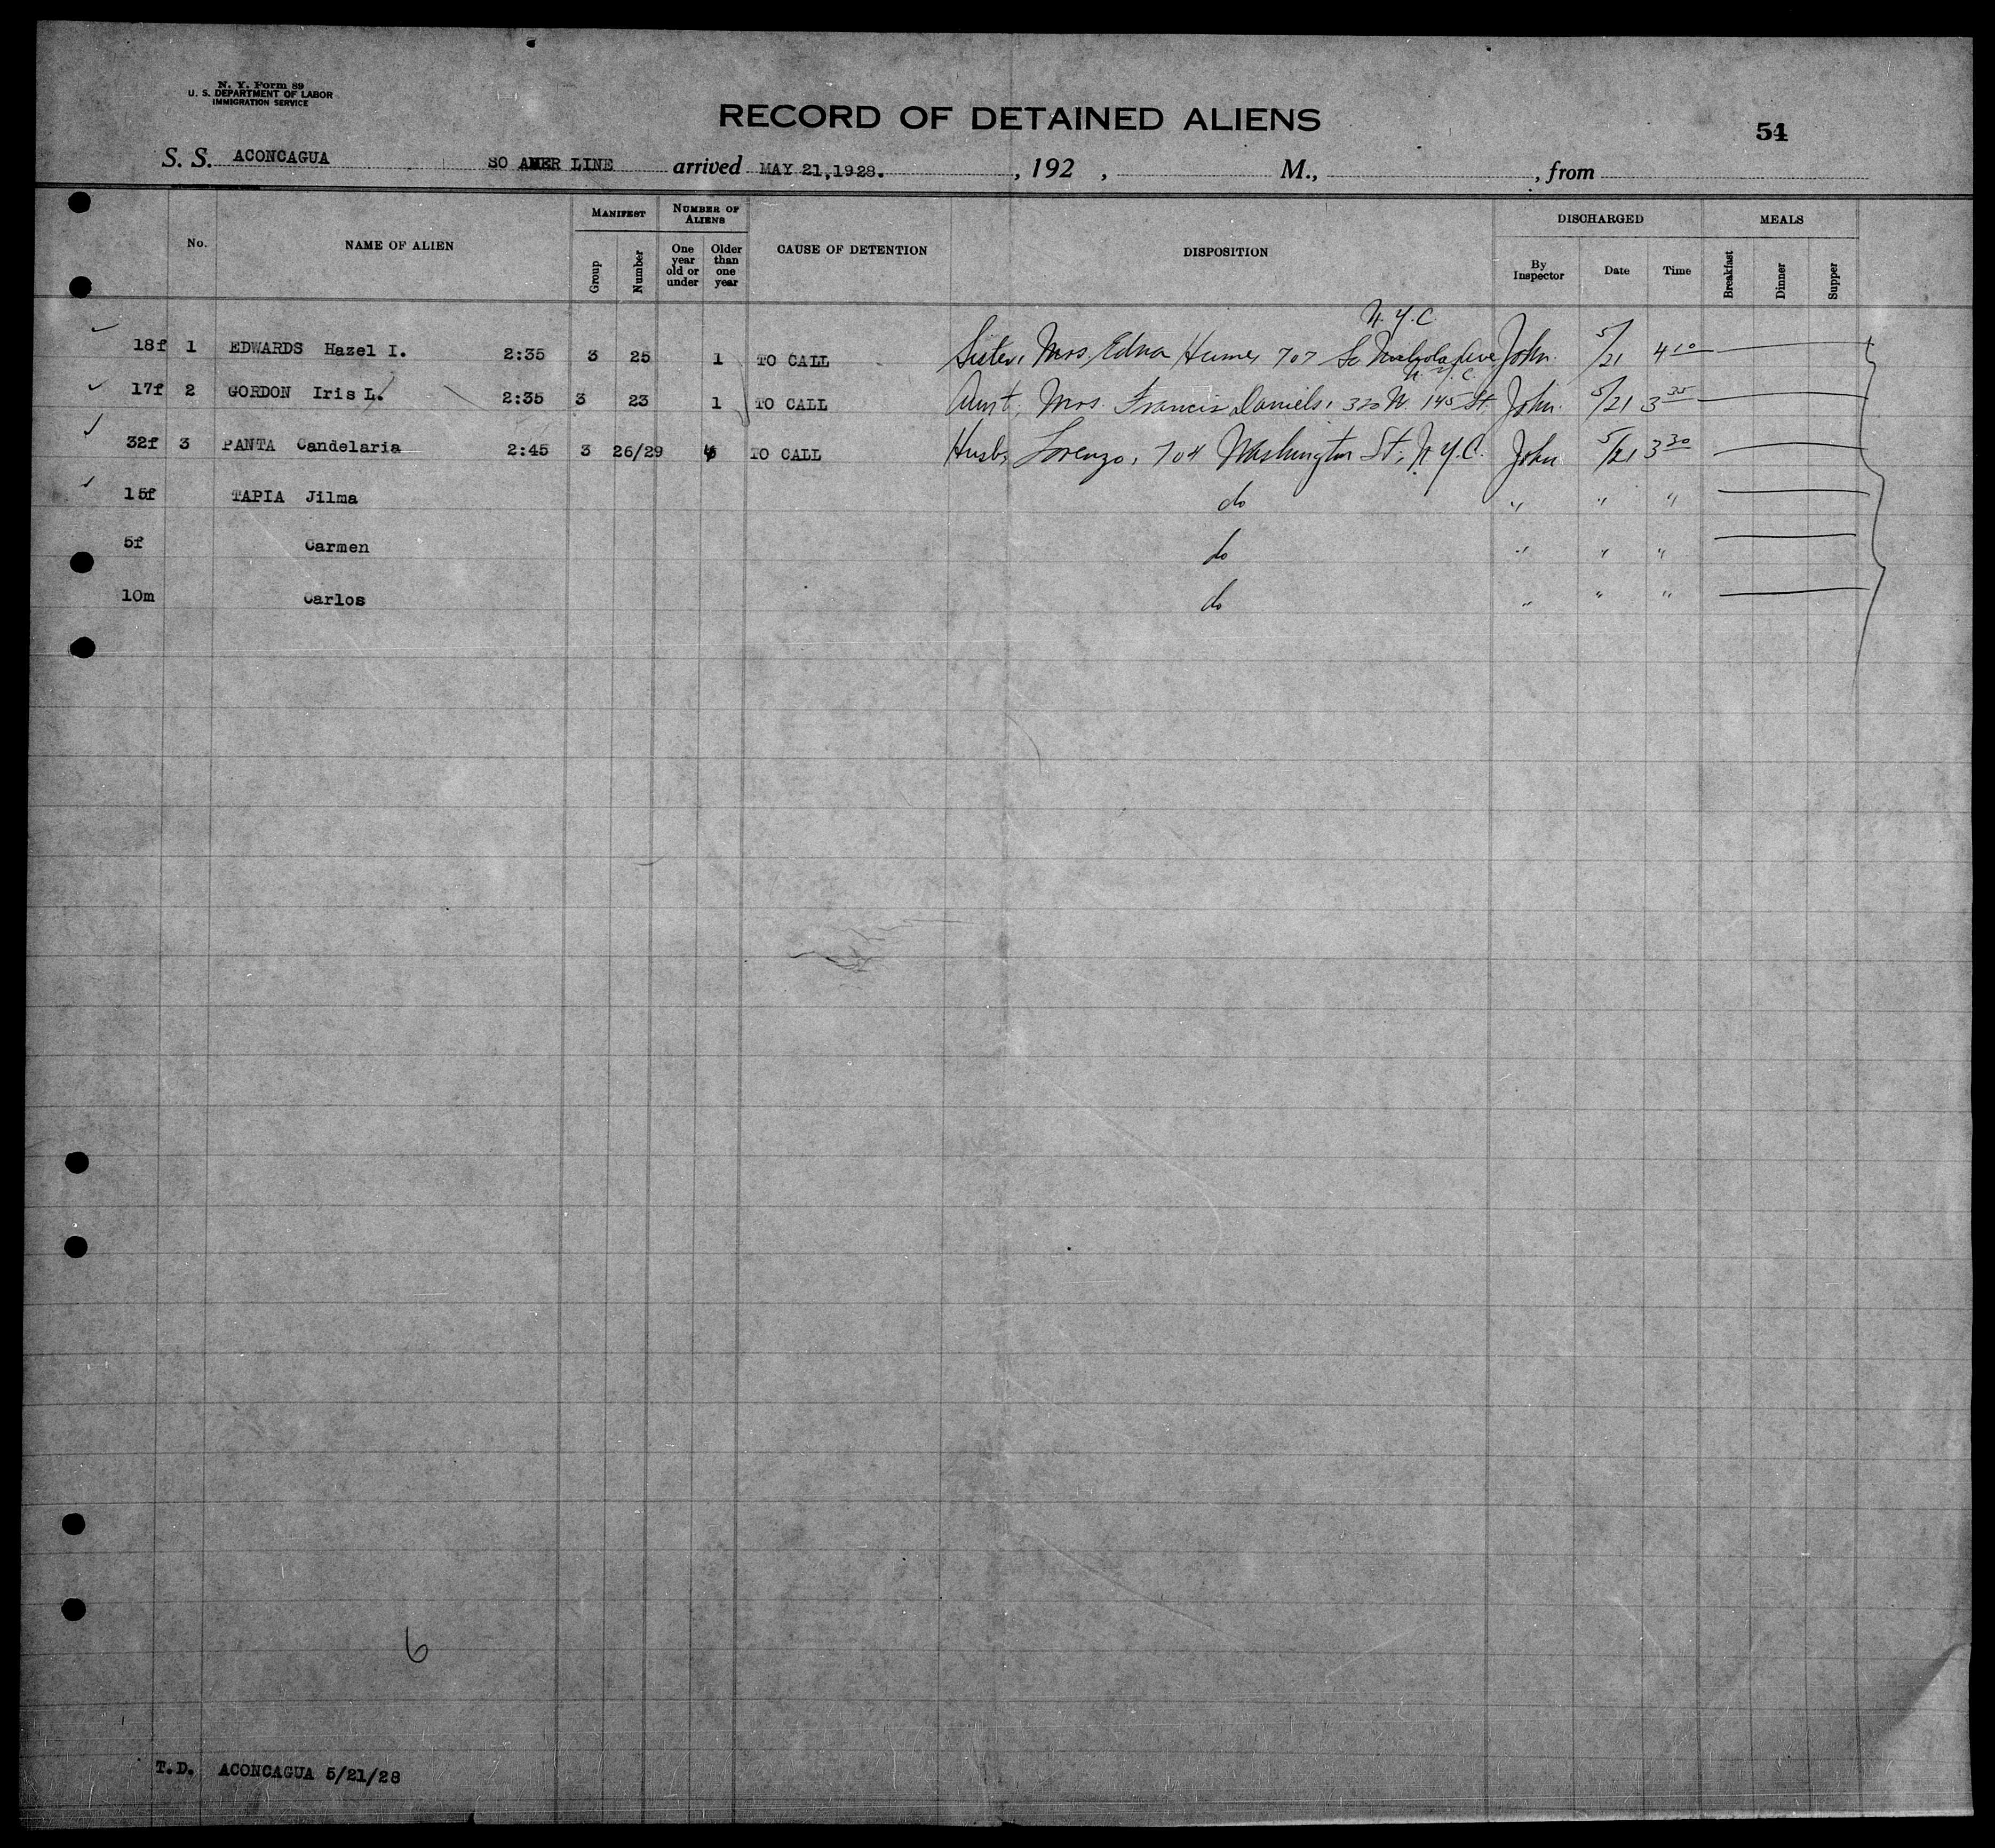 N. Y. Form 89
U. S. DEPARTMENT OF LABOR
IMMIGRATION SERVICE
RECORD OF DETAINED ALIENS
51
S. S. ACONCAGUA SO AMER LINE arrived MAY 21,1928. , 192 , M., , from
No. NAME OF ALIEN MANIFEST Group Number NUMBER OF ALIENS One year old or under Older than one year CAUSE OF DETENTION DISPOSITION DISCHARGED By Inspector Date Time MEALS Breakfast Dinner Supper
N.Y.C.
18f 1 EDWARDS Hazel I. 2:35 3 25 1 TO CALL Sister, Mrs. Edna Hume, 707 Ave John. 5/21 4 10
N.Y.C.
17f 2 GORDON Iris L. 2:35 3 23 1 TO CALL Aunt, Mrs. Francis Daniels, 320 W. 145 St. John. 5/21 3 35
32f 3 PANTA Candelaria 2:45 3 26/29 4 TO CALL Husb, Lorenzo, 704 Washington St, N.Y.C. John 5/21 3 30
15f TAPIA Jilma do " " "
5f Carmen do " " "
10m Carlos do " " "
6
T.D. ACONCAGUA 5/21/28